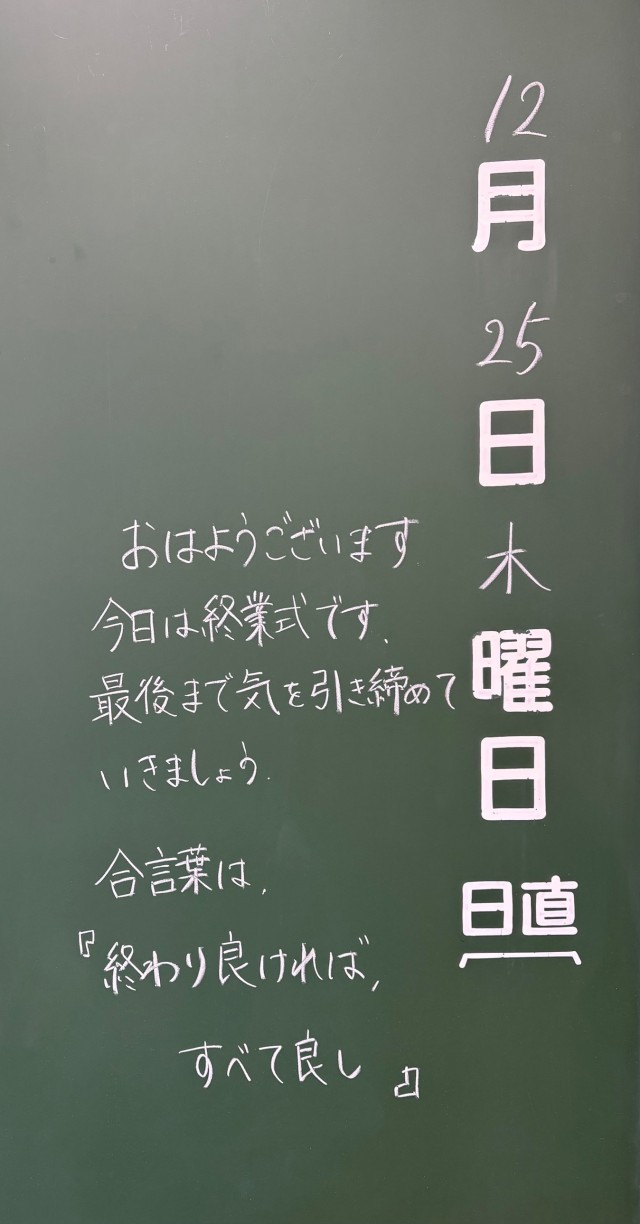 12月25日木曜日
日直
おはようございます
今日は終業式です.
最後まで気を引き締めて
いきましょう.
合言葉は,
『終わり良ければ,
すべて良し』